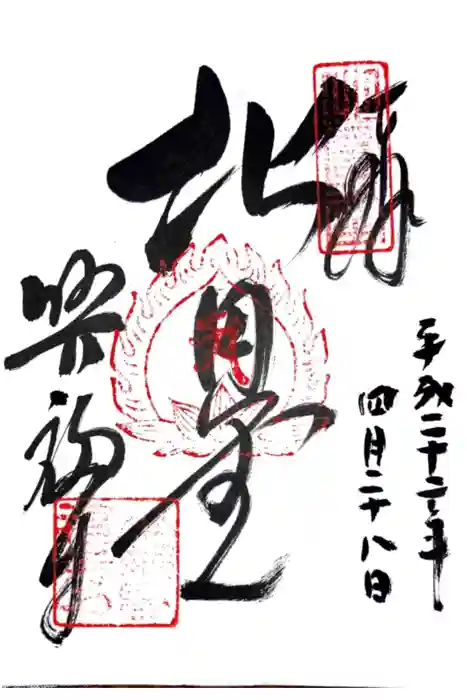 奉拝
平成二十二年
四月二十八日
北円堂
興福寺